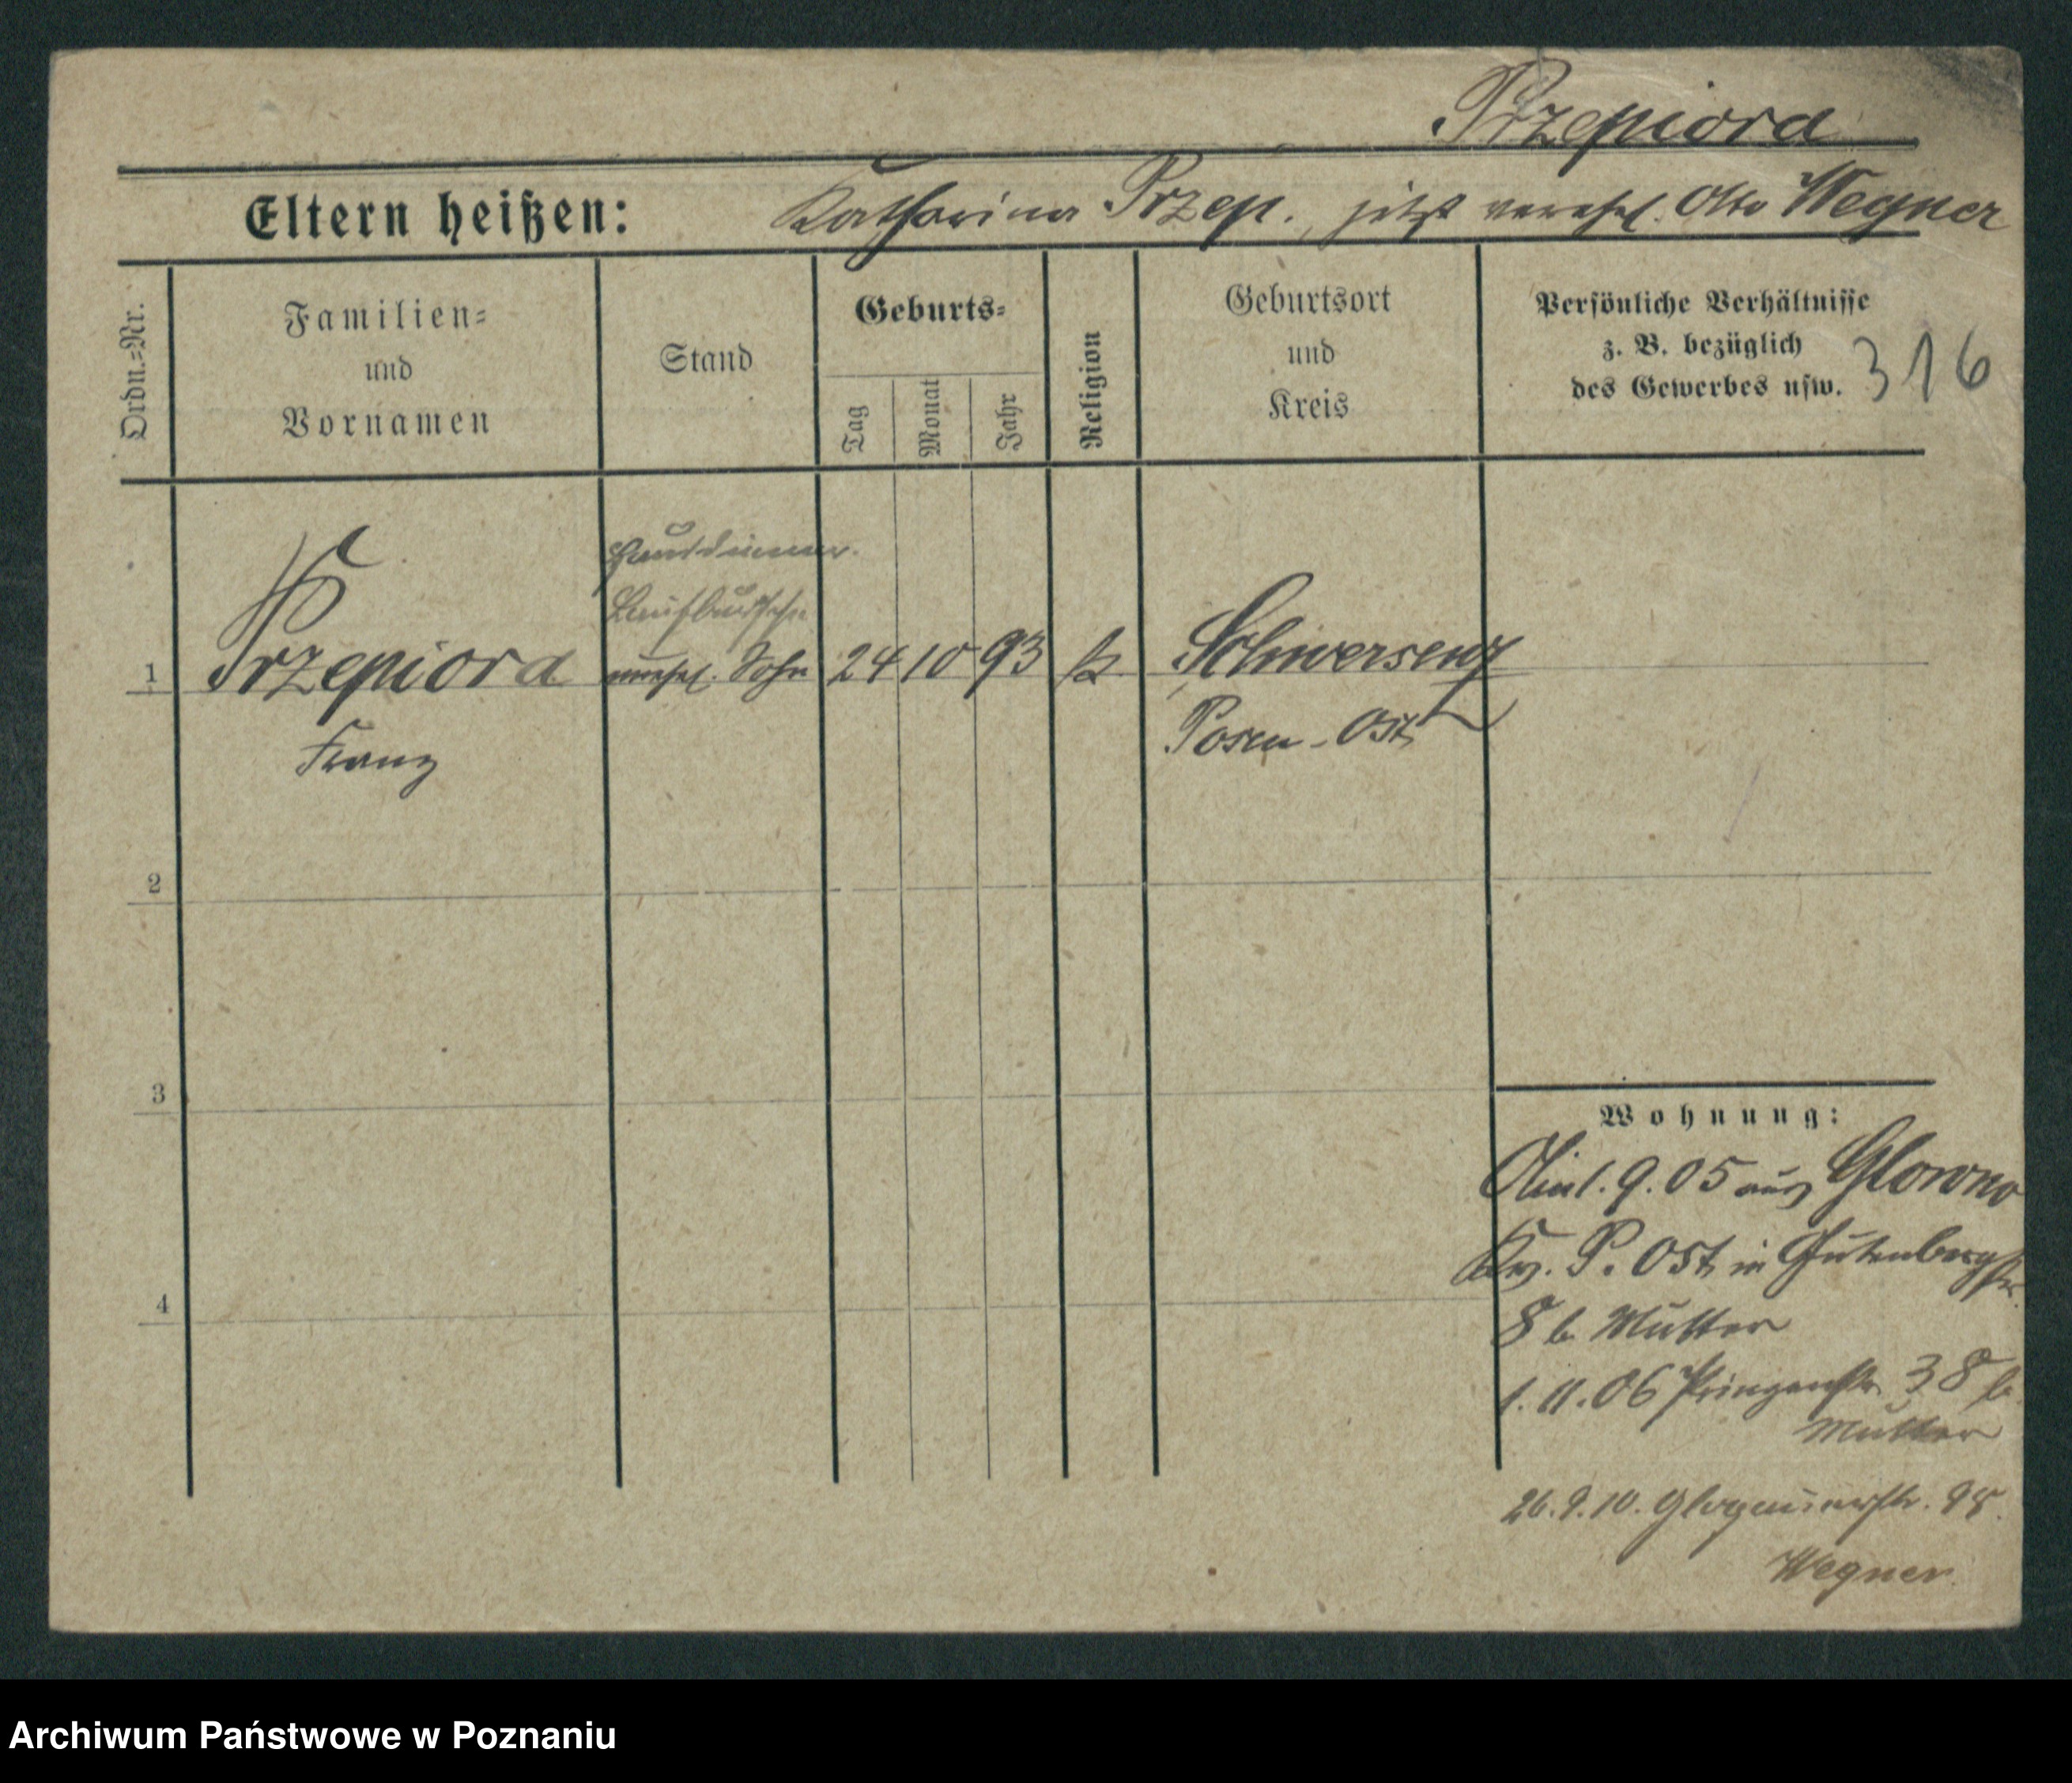 Przepiora
Eltern heißen: Katharina Przep., jetzt verehel. Otto Wegner
Ordn.=Nr.
Familien=
und
Vornamen
Stand
Geburts=
Tag
Monat
Jahr
Religion
Geburtsort
und
Kreis
Persönliche Verhältnisse
z. B. bezüglich
des Gewerbes usw.
316
Hausdiener.
Laufbursche
1 Przepiora unehel. Sohn 24 10 93 k. Schwersenz
Franz
Posen-Ost
2
3
4
Wohnung:
1.9.05 aus Glowno
Krs. P. Ost in Gutenbergstr.
8 b. Mutter
1.11.06 Prinzenstr. 38 b.
Mutter
26.9.10. Glogauerstr. 98.
Wegner.
Archiwum Państwowe w Poznaniu